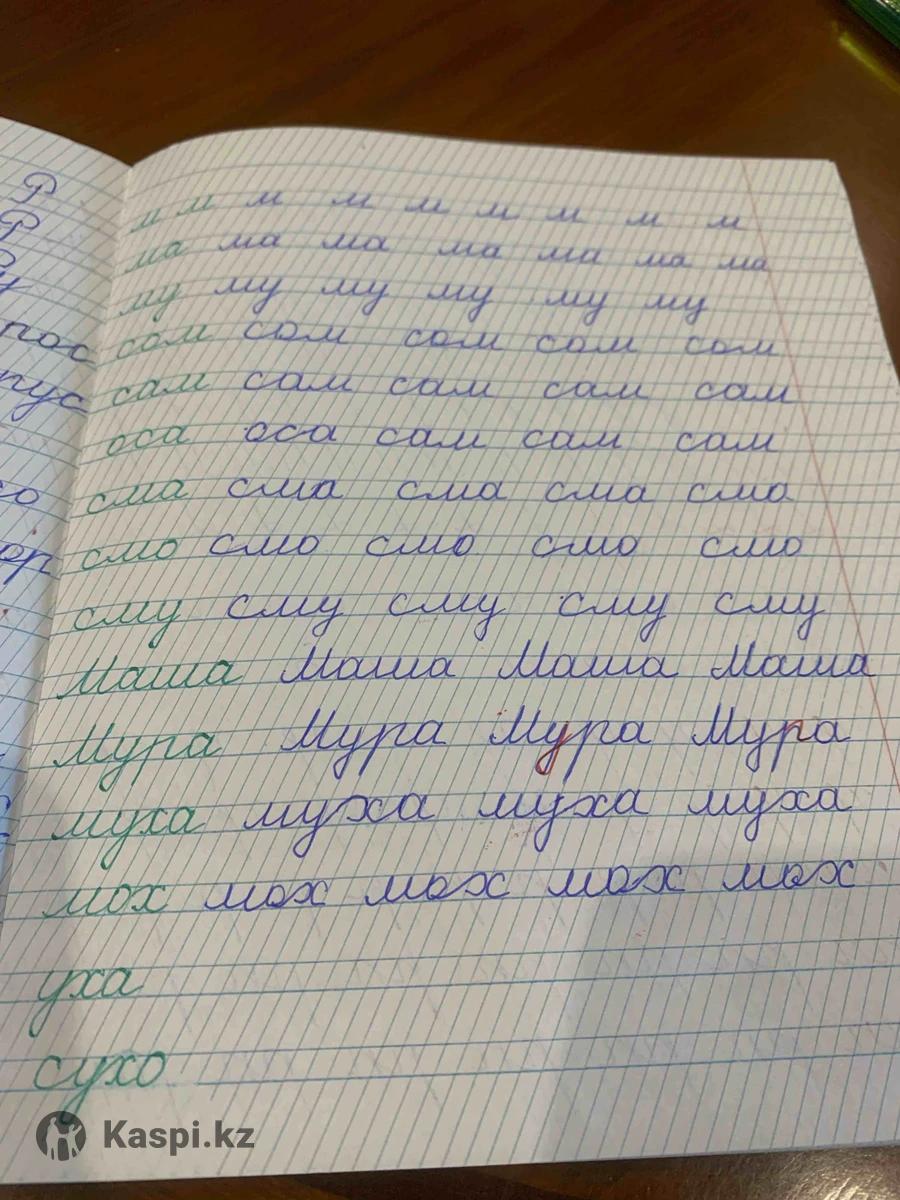 Р
Р
пос
пус
м м м м м м м м м
ма ма ма ма ма ма ма
му му му му му му
сом сом сом сом сом
сам сам сам сам сам
оса оса сам сам сам
сма сма сма сма сма
смо смо смо смо смо
сму сму сму сму сму
Маша Маша Маша Маша
Мура Мура Мура Мура
муха муха муха муха
мох мох мох мох мох
уха
сухо
Kaspi.kz